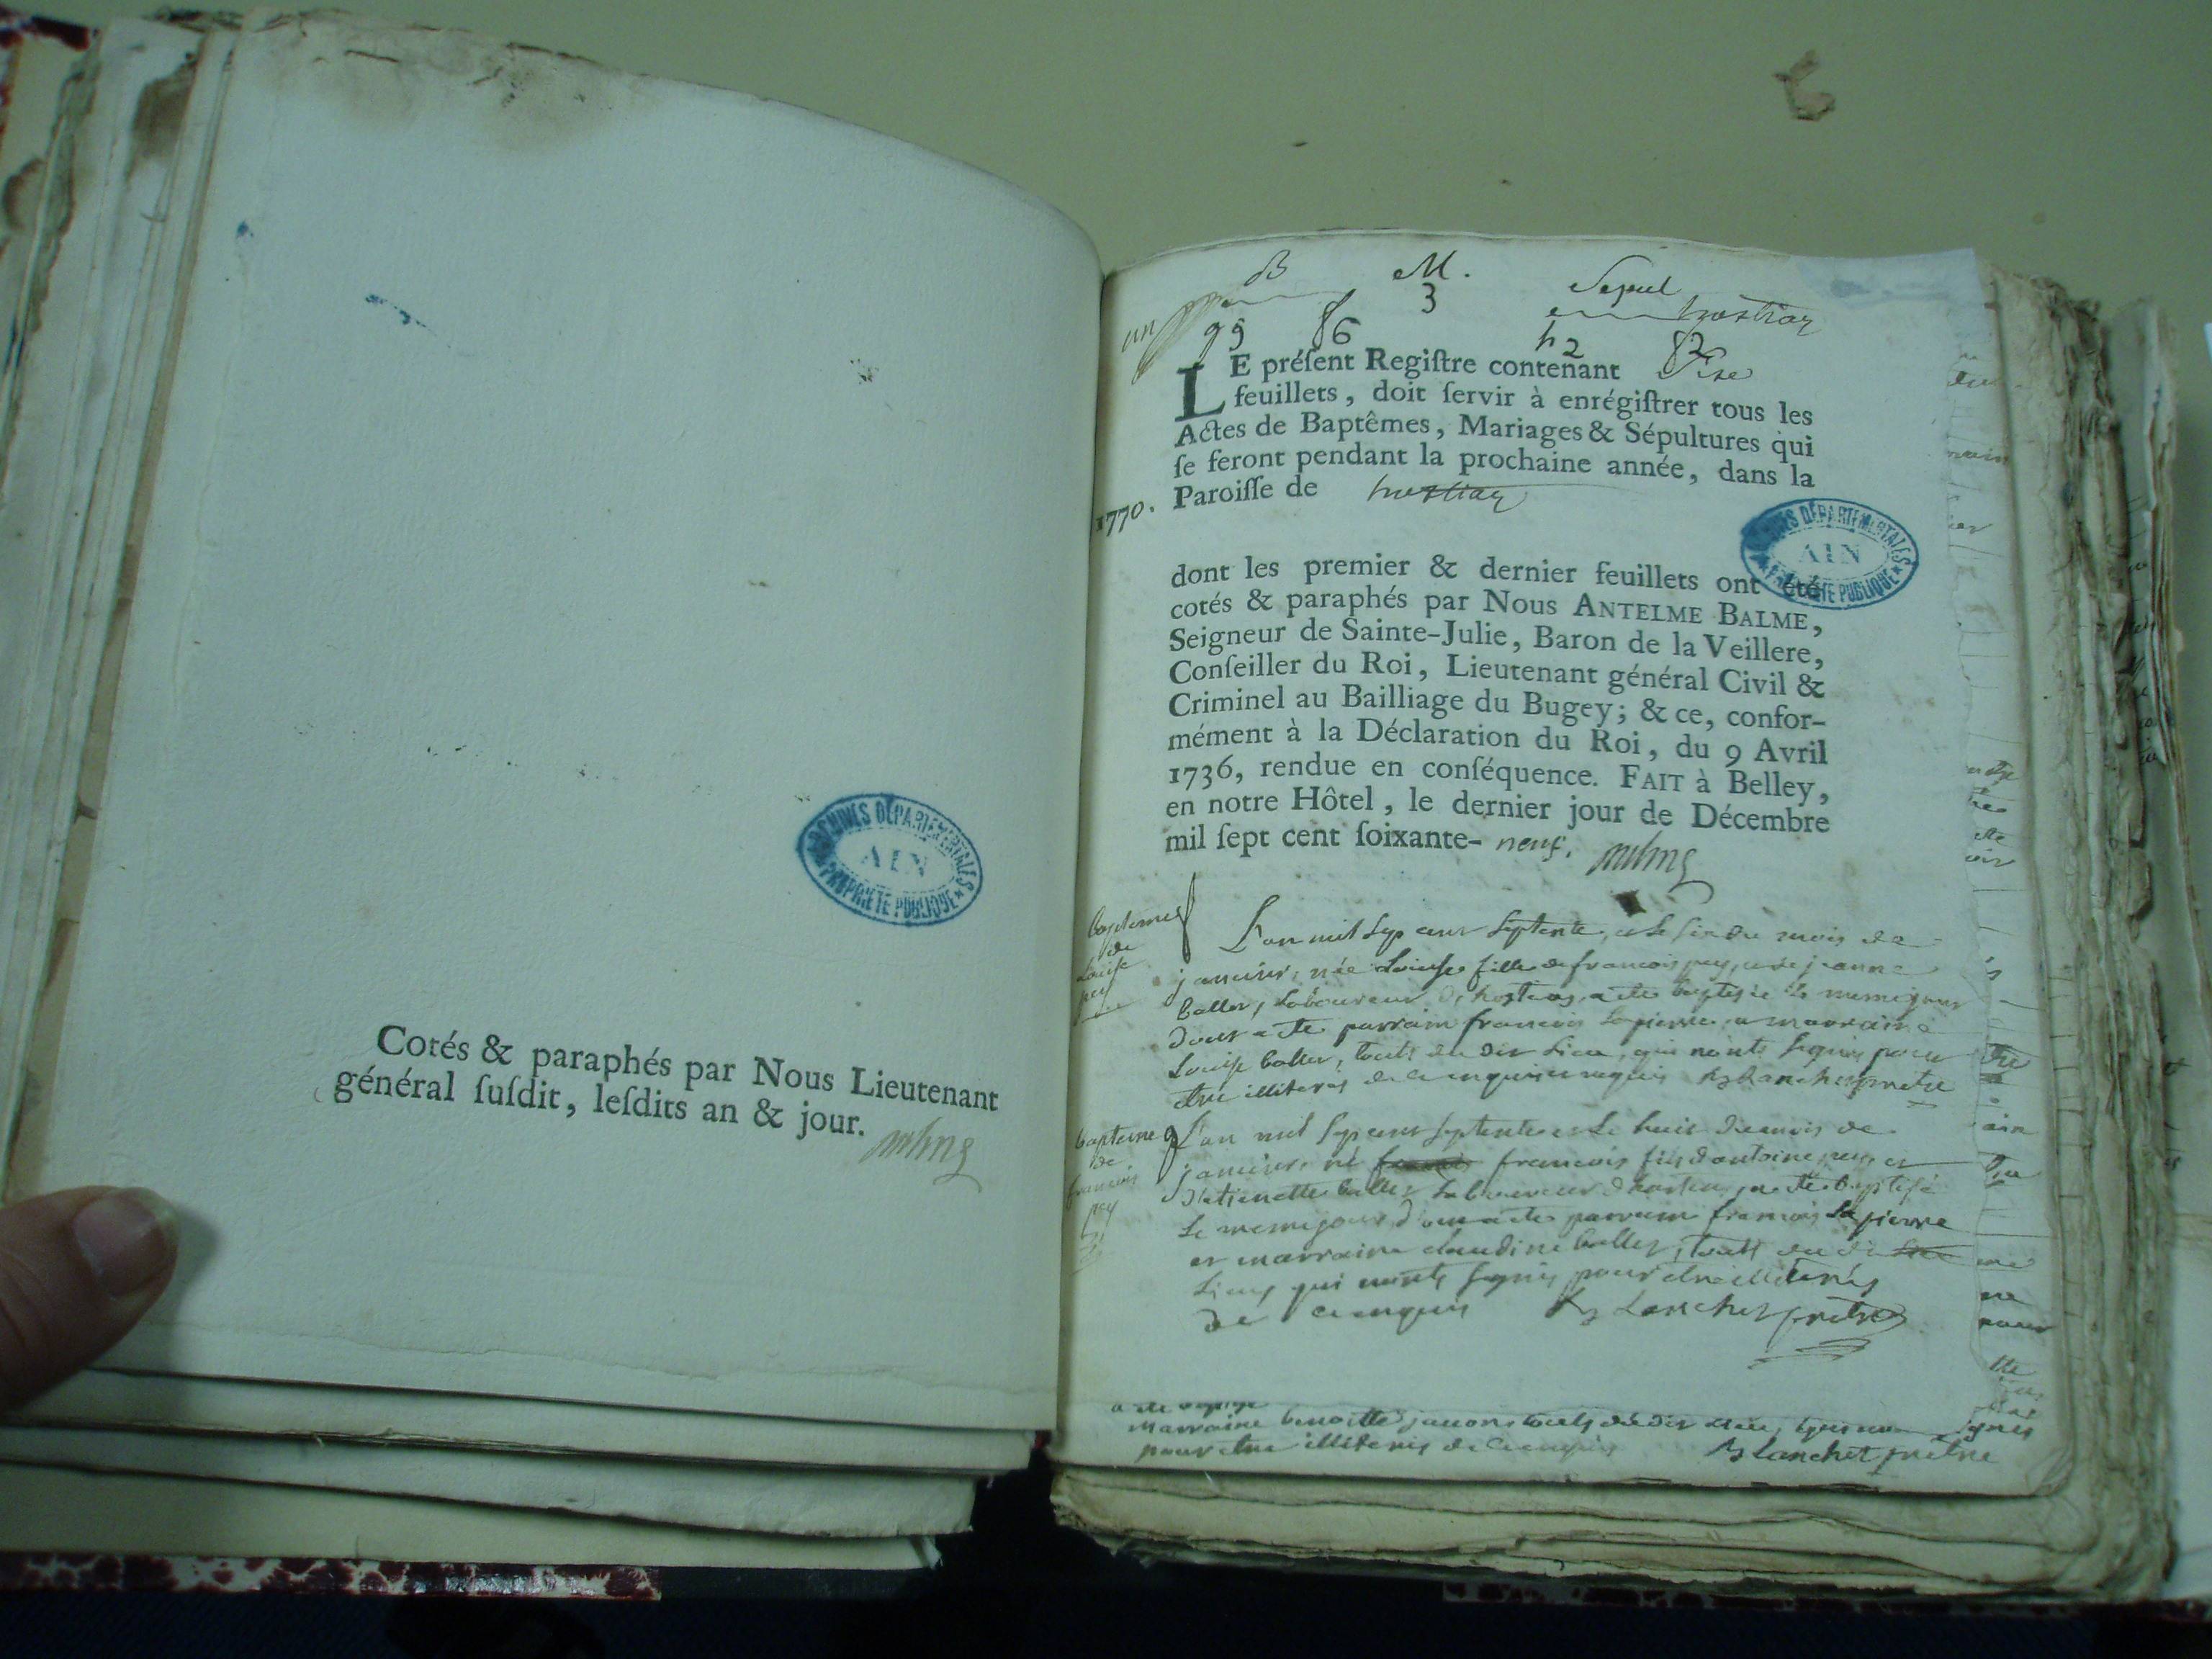 ARCHIVES DÉPARTEMENTALES
AIN
PROPRIÉTÉ PUBLIQUE
Cotés & paraphés par Nous Lieutenant
général ſuſdit, leſdits an & jour.
B M. Sepul
3
un hostiaz
99 86 42 82
LE préſent Regiſtre contenant Sise
feuillets, doit ſervir à enrégiſtrer tous les
Actes de Baptêmes, Mariages & Sépultures qui
ſe feront pendant la prochaine année, dans la
1770. Paroiſſe de hostiaz
ARCHIVES DÉPARTEMENTALES
AIN
PROPRIÉTÉ PUBLIQUE
dont les premier & dernier feuillets ont été
cotés & paraphés par Nous ANTELME BALME,
Seigneur de Sainte-Julie, Baron de la Veillere,
Conſeiller du Roi, Lieutenant général Civil &
Criminel au Bailliage du Bugey; & ce, confor-
mément à la Déclaration du Roi, du 9 Avril
1736, rendue en conſéquence. FAIT à Belley,
en notre Hôtel, le dernier jour de Décembre
mil ſept cent ſoixante- neuf.
bapteme
de
Louise
pey
L'an mil sep cent septente, et le six du mois de
janvier, née Louise fille de francois pey, et de jeanne
ballet, laboureur d'hostiaz, a ete baptisée le meme jour
dont a ete parrain francois lapierre et marraine
Louise ballet, touts du dit lieu, qui n'onts signés pour
etre illiterés de ce enquis et requis Blanchet pretre
bapteme
de
francois
pey
L'an mil sep cent septente et le huit du mois de
janvier, né francois fils d'antoine pey, et
d'etienette ballet laboureur d'hostiaz, a ete baptisé
le meme jour, dont a ete parrain francois Lapierre
et marraine claudine ballet, touts du di
lieu, qui n'onts signés pour etre illiterés
de ce enquis Blanchet pretre
a ete baptisé
marraine benoitte touts du dit lieu, signés
pour etre illiterés de ce enquis Blanchet pretre